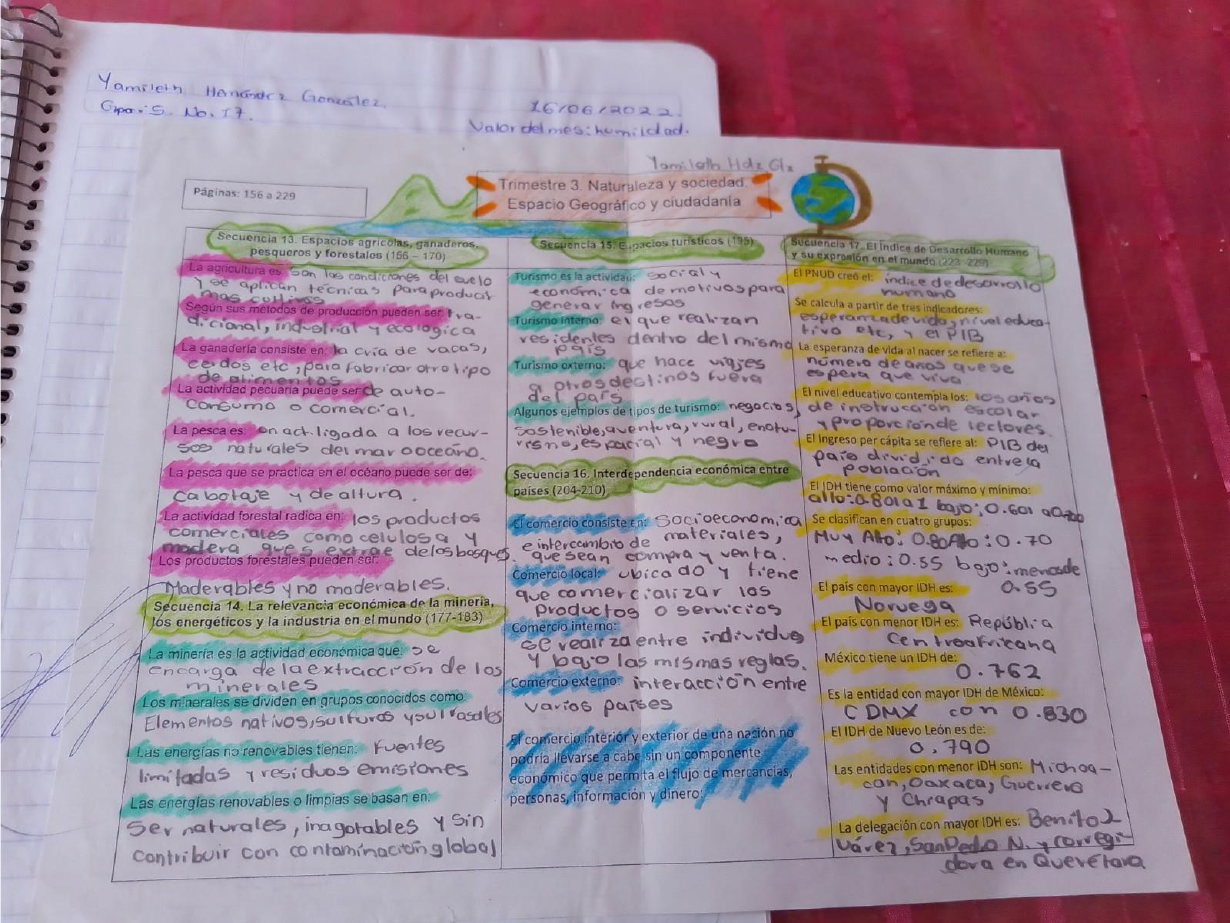 Yamileth Hernández González.
Grupo: 5. No. 17.
16/06/2022.
Valor del mes: humildad.
Yamileth Hdz Glz
Páginas: 156 a 229
Trimestre 3. Naturaleza y sociedad.
Espacio Geográfico y ciudadanía
Secuencia 13. Espacios agrícolas, ganaderos,
pesqueros y forestales (156 – 170)
La agricultura es son las condiciones del suelo
y se aplican técnicas para producir
mas cultivos
Según sus métodos de producción pueden ser: tra-
dicional, industrial y ecologica
La ganadería consiste en: la cría de vacas,
cerdos etc, para fabricar otro tipo
de alimentos
La actividad pecuaria puede ser de auto-
consumo o comercial.
La pesca es: on act. ligada a los recur-
sos naturales del mar o oceáno.
La pesca que se practica en el océano puede ser de:
Cabotaje y de altura.
La actividad forestal radica en: los productos
comerciales como celulosa y
madera que s extrae de los bosques.
Los productos forestales pueden ser:
Maderables y no maderables.
Secuencia 14. La relevancia económica de la minería,
los energéticos y la industria en el mundo (177-183)
La minería es la actividad económica que: se
encarga de la extracción de los
minerales
Los minerales se dividen en grupos conocidos como
Elementos nativos, sulfuros y
Las energías no renovables tienen: Fuentes
limitadas y residuos emisiones
Las energías renovables o limpias se basan en:
Ser naturales, inagotables y sin
contribuir con contaminación global
Secuencia 15. Espacios turísticos (195)
Turismo es la actividad: social y
económica de motivos para
generar ingresos
Turismo interno: el que realizan
residentes dentro del mismo
país
Turismo externo: que hace viajes
a otros destinos fuera
del país
Algunos ejemplos de tipos de turismo: negocios,
sostenible, aventura, rural, enotu-
rismo, espacial y negro
Secuencia 16. Interdependencia económica entre
países (204-210)
El comercio consiste en: Socioeconomica
e intercambio de materiales,
que sean compra y venta.
Comercio local: ubicado y tiene
que comercializar los
productos o servicios
Comercio interno:
se realiza entre individuo
y bajo las mismas reglas.
Comercio externo: interacción entre
varios países
El comercio interior y exterior de una nación no
podría llevarse a cabo sin un componente
económico que permita el flujo de mercancías,
personas, información y dinero:
Secuencia 17. El Índice de Desarrollo Humano
y su expresión en el mundo (223 -229)
El PNUD creó el: índice de desarrollo
humano
Se calcula a partir de tres indicadores:
esperanza de vida, nivel educa-
tivo etc, y el PIB
La esperanza de vida al nacer se refiere a:
número de años que se
espera que viva
El nivel educativo contempla los: los años
de instrucción escolar
y proporción de lectores.
El Ingreso per cápita se refiere al: PIB del
país dividido entre la
población
El IDH tiene como valor máximo y mínimo:
alto: 0.801 a 1 bajo: 0.601 a
Se clasifican en cuatro grupos:
Muy Alto: 0.80 Alto: 0.70
medio: 0.55 bajo: menos de
0.55
El país con mayor IDH es:
Noruega
El país con menor IDH es: República
Centroafricana
México tiene un IDH de:
0.762
Es la entidad con mayor IDH de México:
CDMX con 0.830
El IDH de Nuevo León es de:
0.790
Las entidades con menor IDH son: Michoa-
can, Oaxaca, Guerrero
y Chiapas
La delegación con mayor IDH es: Benito J
uárez, San Pedro N. y corregi-
dora en Querétaro